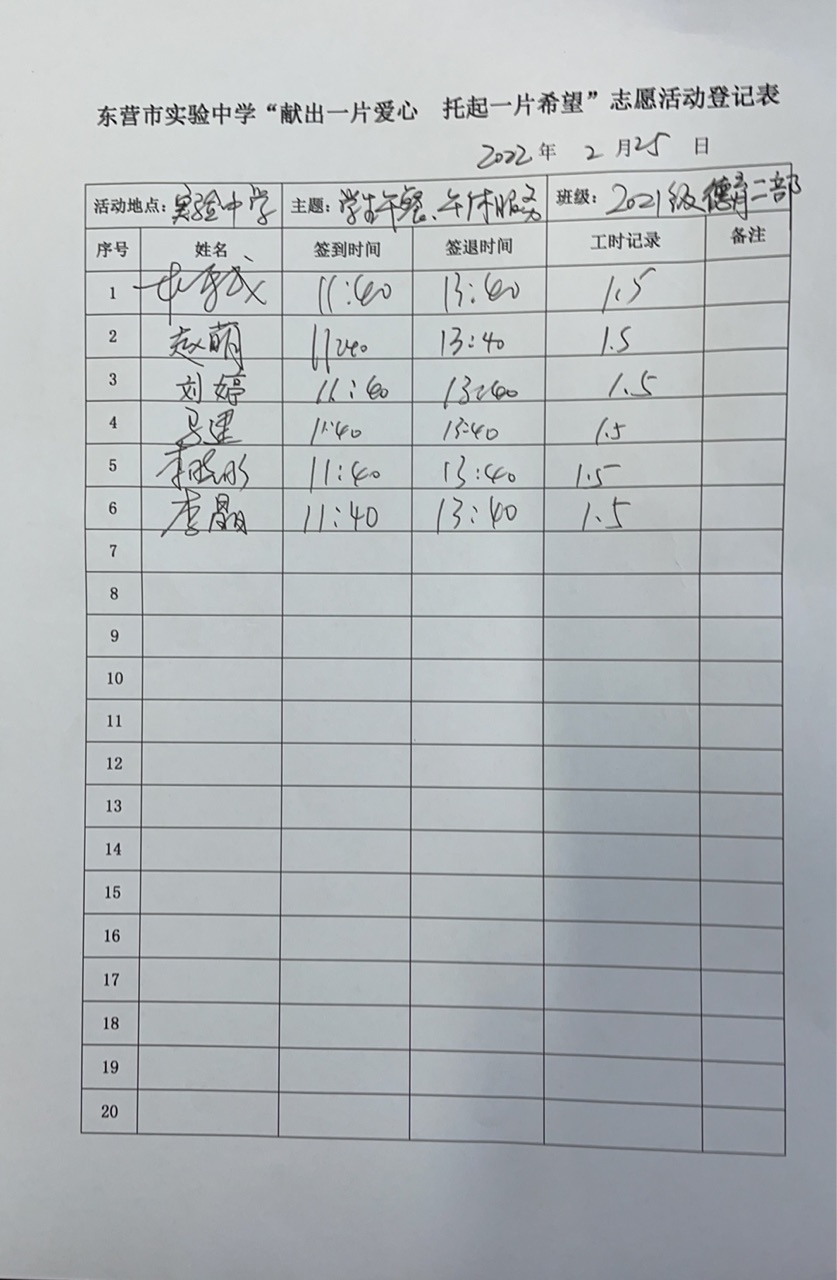 东营市实验中学“献出一片爱心 托起一片希望”志愿活动登记表
2022年 2月25日
活动地点：实验中学 主题：学生午餐、午休服务 班级：2021级德育二部
序号 姓名 签到时间 签退时间 工时记录 备注
1 11:40 13:40 1.5
2 赵萌 11:40 13:40 1.5
3 刘婷 11:40 13:40 1.5
4 马建 11:40 13:40 1.5
5 李晓彤 11:40 13:40 1.5
6 李晶 11:40 13:40 1.5
7
8
9
10
11
12
13
14
15
16
17
18
19
20